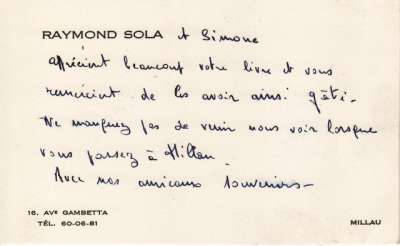 RAYMOND SOLA et Simone
apprécient beaucoup votre livre et vous
remercient de les avoir ainsi gâtés.
Ne manquez pas de venir nous voir lorsque
vous passez à Millau.
Avec nos amicaux souvenirs –
16, AVE GAMBETTA
TÉL. 60-06-81
MILLAU